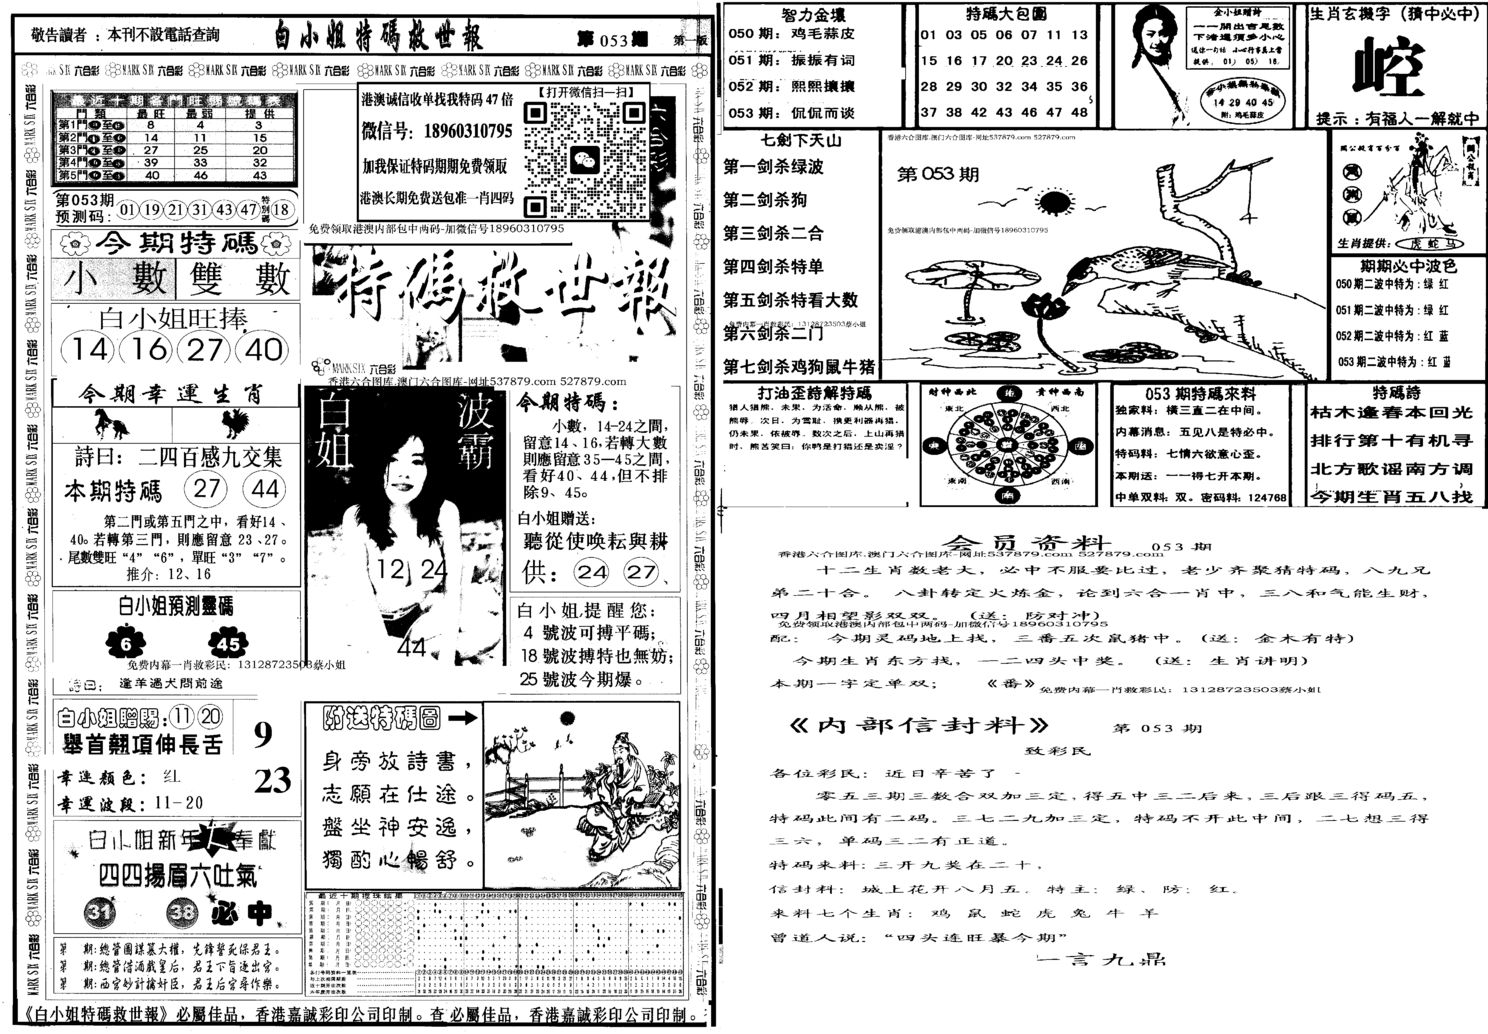 敬告讀者：本刊不設電話查詢
白小姐特碼救世報
第053期
第一版
最近十期各門旺弱號碼表
門類 最旺 最弱 提供
第1門 至 8 4 3
第2門 至 14 11 15
第3門 至 27 25 20
第4門 至 39 33 32
第5門 至 40 46 43
第053期
预测码：01 19 21 31 43 47 特別碼 18
今期特碼
小數 雙數
白小姐旺捧
14 16 27 40
今期幸運生肖
詩曰：二四百感九交集
本期特碼 27 44
第二門或第五門之中，看好14、
40。若轉第三門，則應留意 23、27。
尾數雙旺“4”“6”，單旺“3”“7”。
推介：12、16
白小姐預測靈碼
6 45
免费内幕一肖救彩民：13128723503蔡小姐
詩曰：逢羊遇犬問前途
白小姐贈賜：11 20
舉首翹項伸長舌
9
23
幸运颜色：红
幸運波段：11-20
白小姐新年 奉獻
四四揚眉六吐氣
31 38 必中
第 期：總管圖謀篡大權，先鋒誓死保君王。
第 期：總管借酒戲皇后，君王下旨逐出宮。
第 期：西宮妙計擒奸臣，君王后宮尋作樂。
港澳诚信收单找我特码 47 倍
微信号：18960310795
加我保证特码期期免费领取
港澳长期免费送包准一肖四码
【打开微信扫一扫】
免费领取港澳内部包中两码-加微信号18960310795
特碼救世報
MARK SIX 六合彩
香港六合图库.澳门六合图库-网址537879.com 527879.com
白姐
波霸
12 24
44
今期特碼：
小數，14-24之間，
留意14、16，若轉大數
則應留意35—45之間，
看好40、44，但不排
除9、45。
白小姐贈送：
聽從使唤耘與耕
供：24 27、
白小姐提醒您：
4 號波可搏平碼；
18 號波搏特也無妨；
25 號波今期爆。
附送特碼圖
身旁放詩書，
志願在仕途。
盤坐神安逸，
獨酌心暢舒。
最近十期攪珠結果
《白小姐特碼救世報》必屬佳品，香港嘉誠彩印公司印制。查 必屬佳品，香港嘉誠彩印公司印制。
智力金壤
050 期：鸡毛蒜皮
051 期：振振有词
052 期：熙熙攘攘
053 期：侃侃而谈
特碼大包圍
01 03 05 06 07 11 13
15 16 17 20 23 24 26
28 29 30 32 34 35 36
37 38 42 43 46 47 48
金小姐贈詩
一一開出合尾數
下渚還須多小心
送你一句话 小心行事遇上當
提供：01) 05) 16.
14 29 40 45
附：鸡毛蒜皮
生肖玄機字（猜中必中）
崆
提示：有福人一解就中
七劍下天山
第一剑杀绿波
第二剑杀狗
第三剑杀二合
第四剑杀特单
第五剑杀特看大数
免费内幕一肖救彩民：13128723503蔡小姐
第六剑杀二门
第七剑杀鸡狗鼠牛猪
香港六合图库.澳门六合图库-网址537879.com 527879.com
第 053 期
免费领取港澳内部包中两码-加微信号18960310795
生肖提供：虎蛇马
期期必中波色
050期二波中特为：绿 红
051期二波中特为：绿 红
052期二波中特为：红 蓝
053期二波中特为：红 蓝
打油歪詩解特碼
猎人猎熊，未果，为活命，顺从熊，被
熊辱。次日，为雪耻，携更利器再猎，
仍未果，依被辱。数次之后，上山再猎
时，熊苦笑曰：你鸭是打猎还是卖淫？
财神西北 贵神西南
東北 西北
東南 西南
053 期特碼來料
独家料：横三直二在中间。
内幕消息：五见八是特必中。
特码料：七情六欲意心歪。
本期送：一一得七开本期。
中单双料：双。密码料：124768
特碼詩
枯木逢春本回光
排行第十有机寻
北方歌谣南方调
今期生肖五八找
会员资料 053 期
香港六合图库.澳门六合图库-网址537879.com 527879.com
十二生肖数老大，必中不服要比过，老少齐聚猜特码，八九兄
第二十合。 八卦转定火炼金，论到六合一肖中，三八和气能生财，
四月相望影双双。（送：防对冲）
免费领取港澳内部包中两码-加微信号18960310795
配： 今期灵码地上找，三番五次鼠猪中。（送：金木有特）
今期生肖东方找，一二四头中奖。（送：生肖讲明）
本期一字定单双； 《番》
免费内幕一肖救彩民：13128723503蔡小姐
《内部信封料》 第 053 期
致彩民
各位彩民：近日辛苦了
零五三期三数合双加三定，得五中三二后来，三后跟三得码五，
特码此间有二码。三七二九加三定，特码不开此中间，二七想三得
三六，单码三二有正道。
特码来料：三开九奖在二十，
信封料：城上花开八月五．特主：绿、防：红．
来料七个生肖：鸡 鼠 蛇 虎 兔 牛 羊
曾道人说：“四头连旺暴今期”
一言九鼎